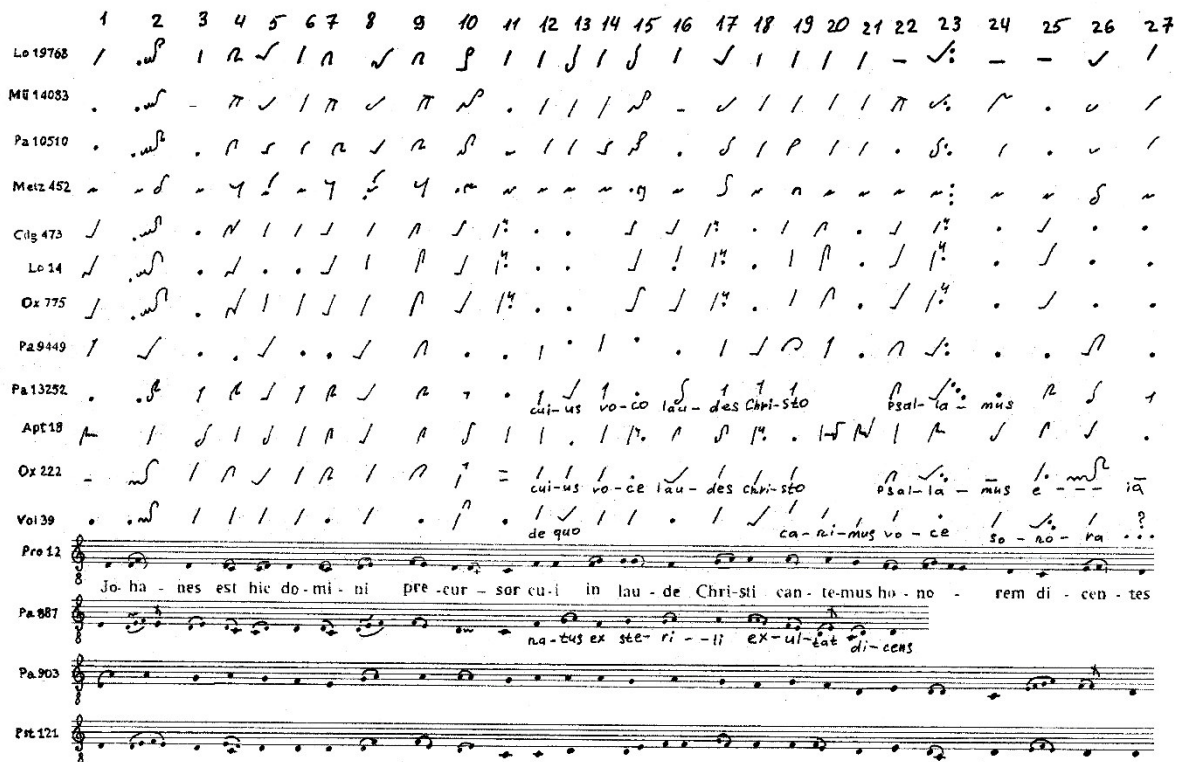 1 2 3 4 5 6 7 8 9 10 11 12 13 14 15 16 17 18 19 20 21 22 23 24 25 26 27
Lo 19768
Mü 14083
Pa 10510
Metz 452
Cdg 473
Lo 14
Ox 775
Pa 9449
Pa 13252
cui-us vo-ce lau-des Chri-sto psal-la-mus
Apt 18
Ox 222
cui-us vo-ce lau-des Chri-sto psal-la-mus e--- ia
Vol 39
de quo ca-ni-mus vo-ce so-no-ra ...
Pro 12
Jo-ha-nes est hic do-mi-ni pre-cur-sor cu-i in lau-de Chri-sti can-te-mus ho-no-rem di-cen-tes
Pa 887
na-tus ex ste-ri--li ex-ul-tat di-cens
Pa 903
Pst 121